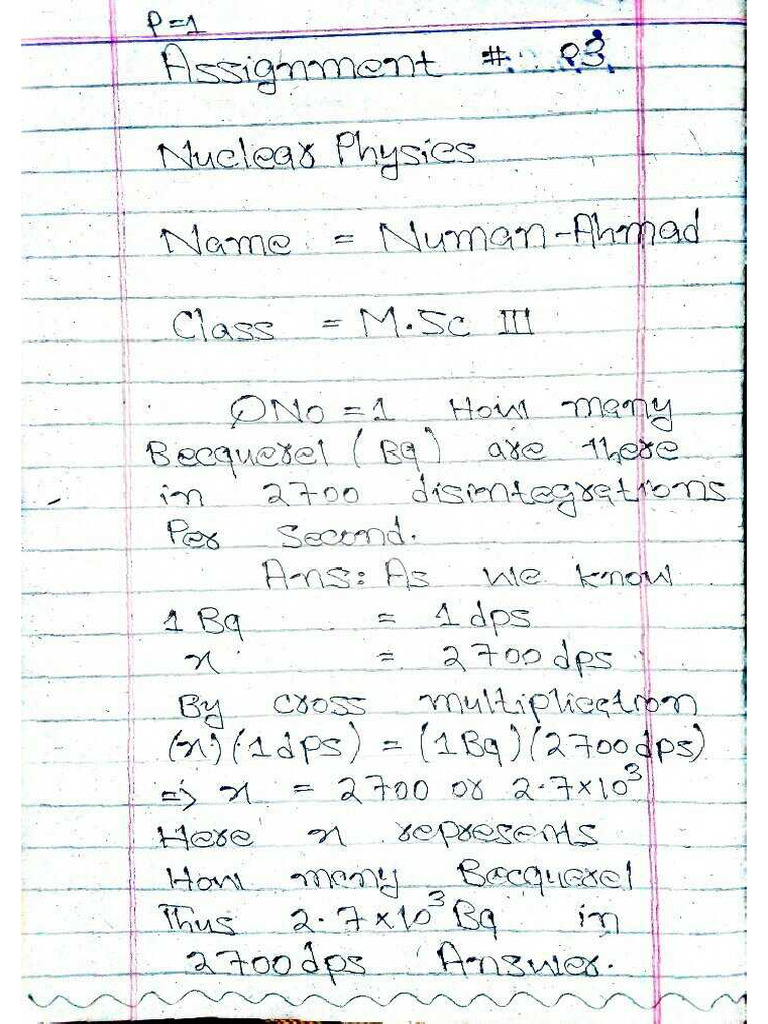 P=1
Assignment #. 03
Nuclear Physics
Name = Numan-Ahmad
Class = M.Sc III
QNo=1 How many
Becquerel (Bq) are there
in 2700 disintegrations
Per Second.
Ans: As we know
1 Bq = 1 dps
x = 2700 dps
By cross multiplication
(x) (1 dps) = (1Bq) (2700 dps)
=> x = 2700 or 2.7×10³
Here x represents
How many Becquerel
Thus 2.7×10³ Bq in
2700 dps Answer.